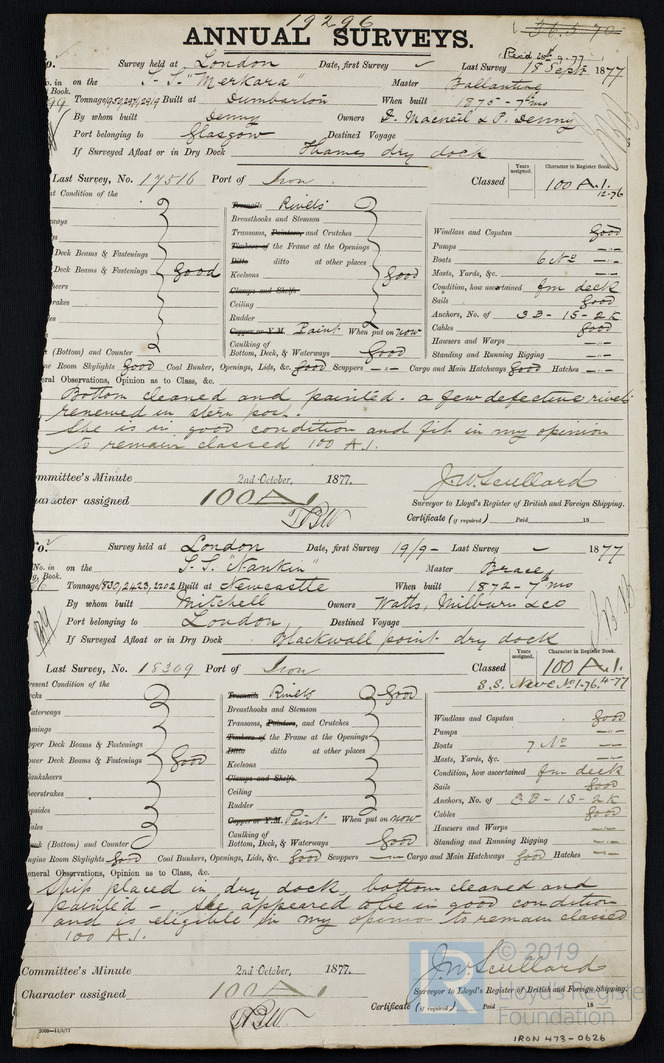 19296
ANNUAL SURVEYS.
Survey held at London Date, first Survey Last Survey 15 Sept. 1877
on the S.S. "Merkara" Master Ballantine
Book. Tonnage Built at Dumbarton When built 1875 - 7 mo
By whom built Denny Owners D. Macneil & P. Denny
Port belonging to Glasgow Destined Voyage
If Surveyed Afloat or in Dry Dock Thames dry dock
Years assigned. Character in Register Book.
Last Survey, No. 17516 Port of Iron Classed 100 A.1. 12-76
t Condition of the
Treenails Rivets
Breasthooks and Stemson
Transoms, Pointers, and Crutches
Timbers of the Frame at the Openings
Ditto ditto at other places
Keelsons good
Clamps and Shelfs
Ceiling
Rudder
Copper or Y.M. Paint When put on now
Caulking of Bottom, Deck, & Waterways Good
Deck Beams & Fastenings
Deck Beams & Fastenings good
(Bottom) and Counter
Windlass and Capstan good
Pumps
Boats 6 No
Masts, Yards, &c.
Condition, how ascertained fm deck
Sails good
Anchors, No. of 3B-1S-2K
Cables good
Hawsers and Warps
Standing and Running Rigging
Room Skylights good Coal Bunker, Openings, Lids, &c. good Scuppers Cargo and Main Hatchways good Hatches
eral Observations, Opinion as to Class, &c.
Bottom cleaned and painted. a few defective rivets
renewed in stern post.
She is in good condition and fit in my opinion
to remain classed 100 A.1.
ommittee's Minute 2nd October, 1877.
aracter assigned 100A1
J.W. Scullard
Surveyor to Lloyd's Register of British and Foreign Shipping.
Certificate (if required) Paid 18
Survey held at London Date, first Survey 19/9 - Last Survey 1877
No. in on the S.S. "Nankin" Master Brace
Book. Tonnage 1830, 2423, 2202 Built at Newcastle When built 872 - 7 mo
By whom built Mitchell Owners Watts, Milburn & Co
Port belonging to London, Destined Voyage
If Surveyed Afloat or in Dry Dock Blackwall point dry dock
Years assigned. Character in Register Book.
Last Survey, No. 18309 Port of Iron Classed 100 A.1.
S.S. Newc No 1-76. 4-77
resent Condition of the
cks
aterways
mings
pper Deck Beams & Fastenings
ower Deck Beams & Fastenings good
lanksheers
heerstrakes
opsides
ales
nk (Bottom) and Counter
Treenails Rivets Good
Breasthooks and Stemson
Transoms, Pointers, and Crutches
Timbers of the Frame at the Openings
Ditto ditto at other places
Keelsons
Clamps and Shelfs.
Ceiling
Rudder
Copper or Y.M. Paint When put on now
Caulking of Bottom, Deck, & Waterways Good
Windlass and Capstan good
Pumps
Boats 7 No
Masts, Yards, &c.
Condition, how ascertained fm deck
Sails good
Anchors, No. of 3B-1S-2K
Cables good
Hawsers and Warps
Standing and Running Rigging
ngine Room Skylights good Coal Bunkers, Openings, Lids, &c. good Scuppers Cargo and Main Hatchways good Hatches
eneral Observations, Opinion as to Class, &c.
Ship placed in dry dock, bottom cleaned and
painted - she appeared to be in good condition
and is eligible in my opinion to remain classed
100 A.1.
Committee's Minute 2nd October, 1877.
Character assigned 100A1
J.W. Scullard
Surveyor to Lloyd's Register of British and Foreign Shipping.
Certificate (if required) Paid 18
© 2019
Lloyd's Register
Foundation
IRON 473-0626